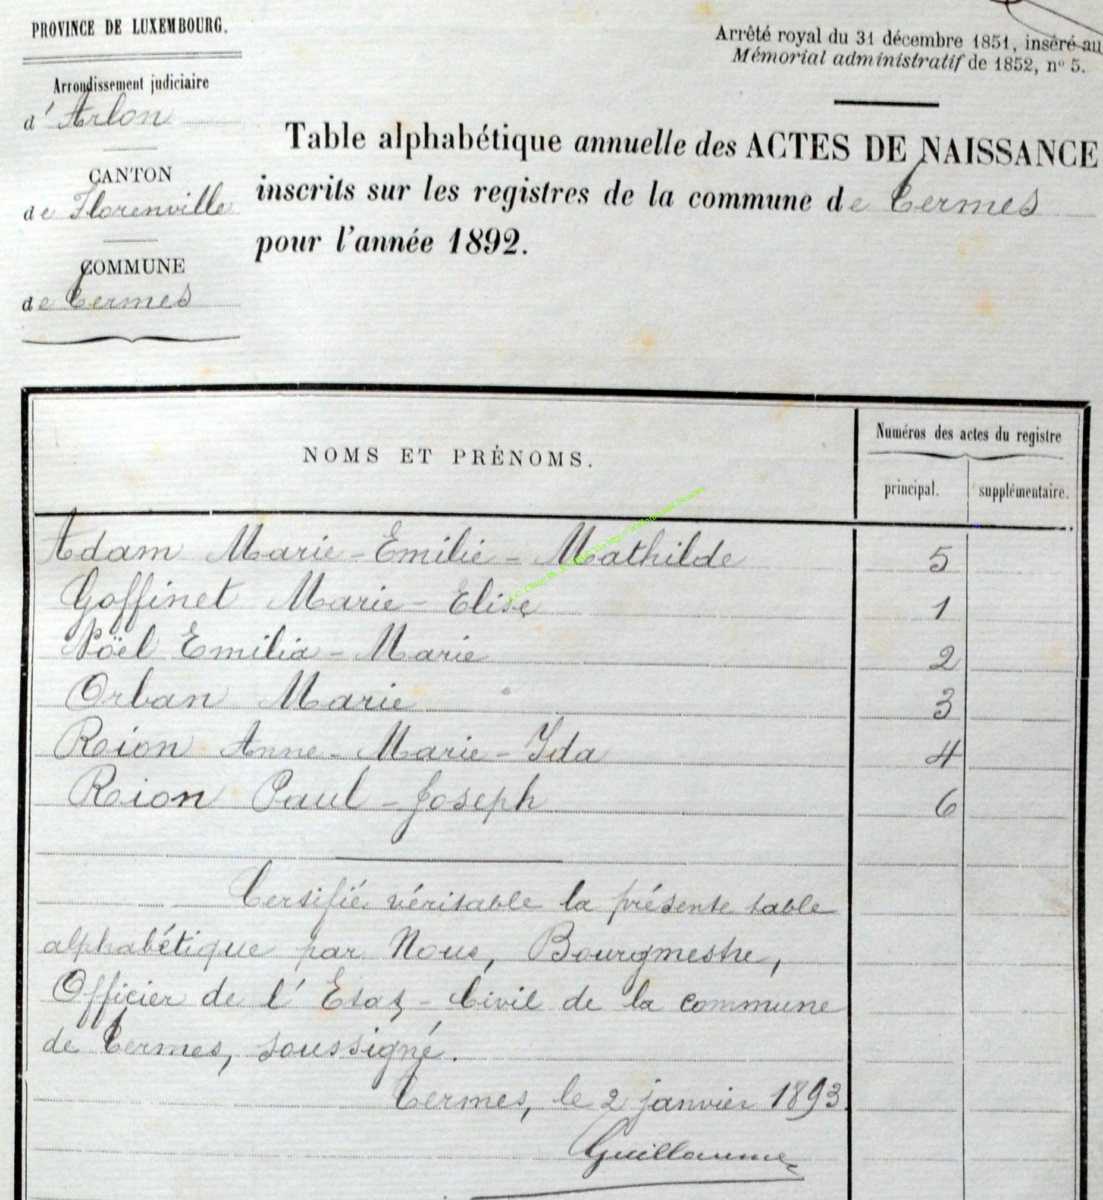 PROVINCE DE LUXEMBOURG.
Arrondissement judiciaire
d'Arlon
CANTON
de Florenville
COMMUNE
de Termes
Arrêté royal du 31 décembre 1851, inséré au
Mémorial administratif de 1852, n° 5.
Table alphabétique annuelle des ACTES DE NAISSANCE
inscrits sur les registres de la commune de Termes
pour l'année 1892.
NOMS ET PRÉNOMS.
Numéros des actes du registre
principal.
supplémentaire.
Adam Marie-Emilie-Mathilde 5
Goffinet Marie-Elise 1
Noël Emilia-Marie 2
Orban Marie 3
Rion Anne-Marie-Ida 4
Rion Paul-Joseph 6
Certifié véritable la présente table
alphabétique par Nous, Bourgmestre,
Officier de l'Etat-Civil de la commune
de Termes, soussigné.
Termes, le 2 janvier 1893
Guillaume